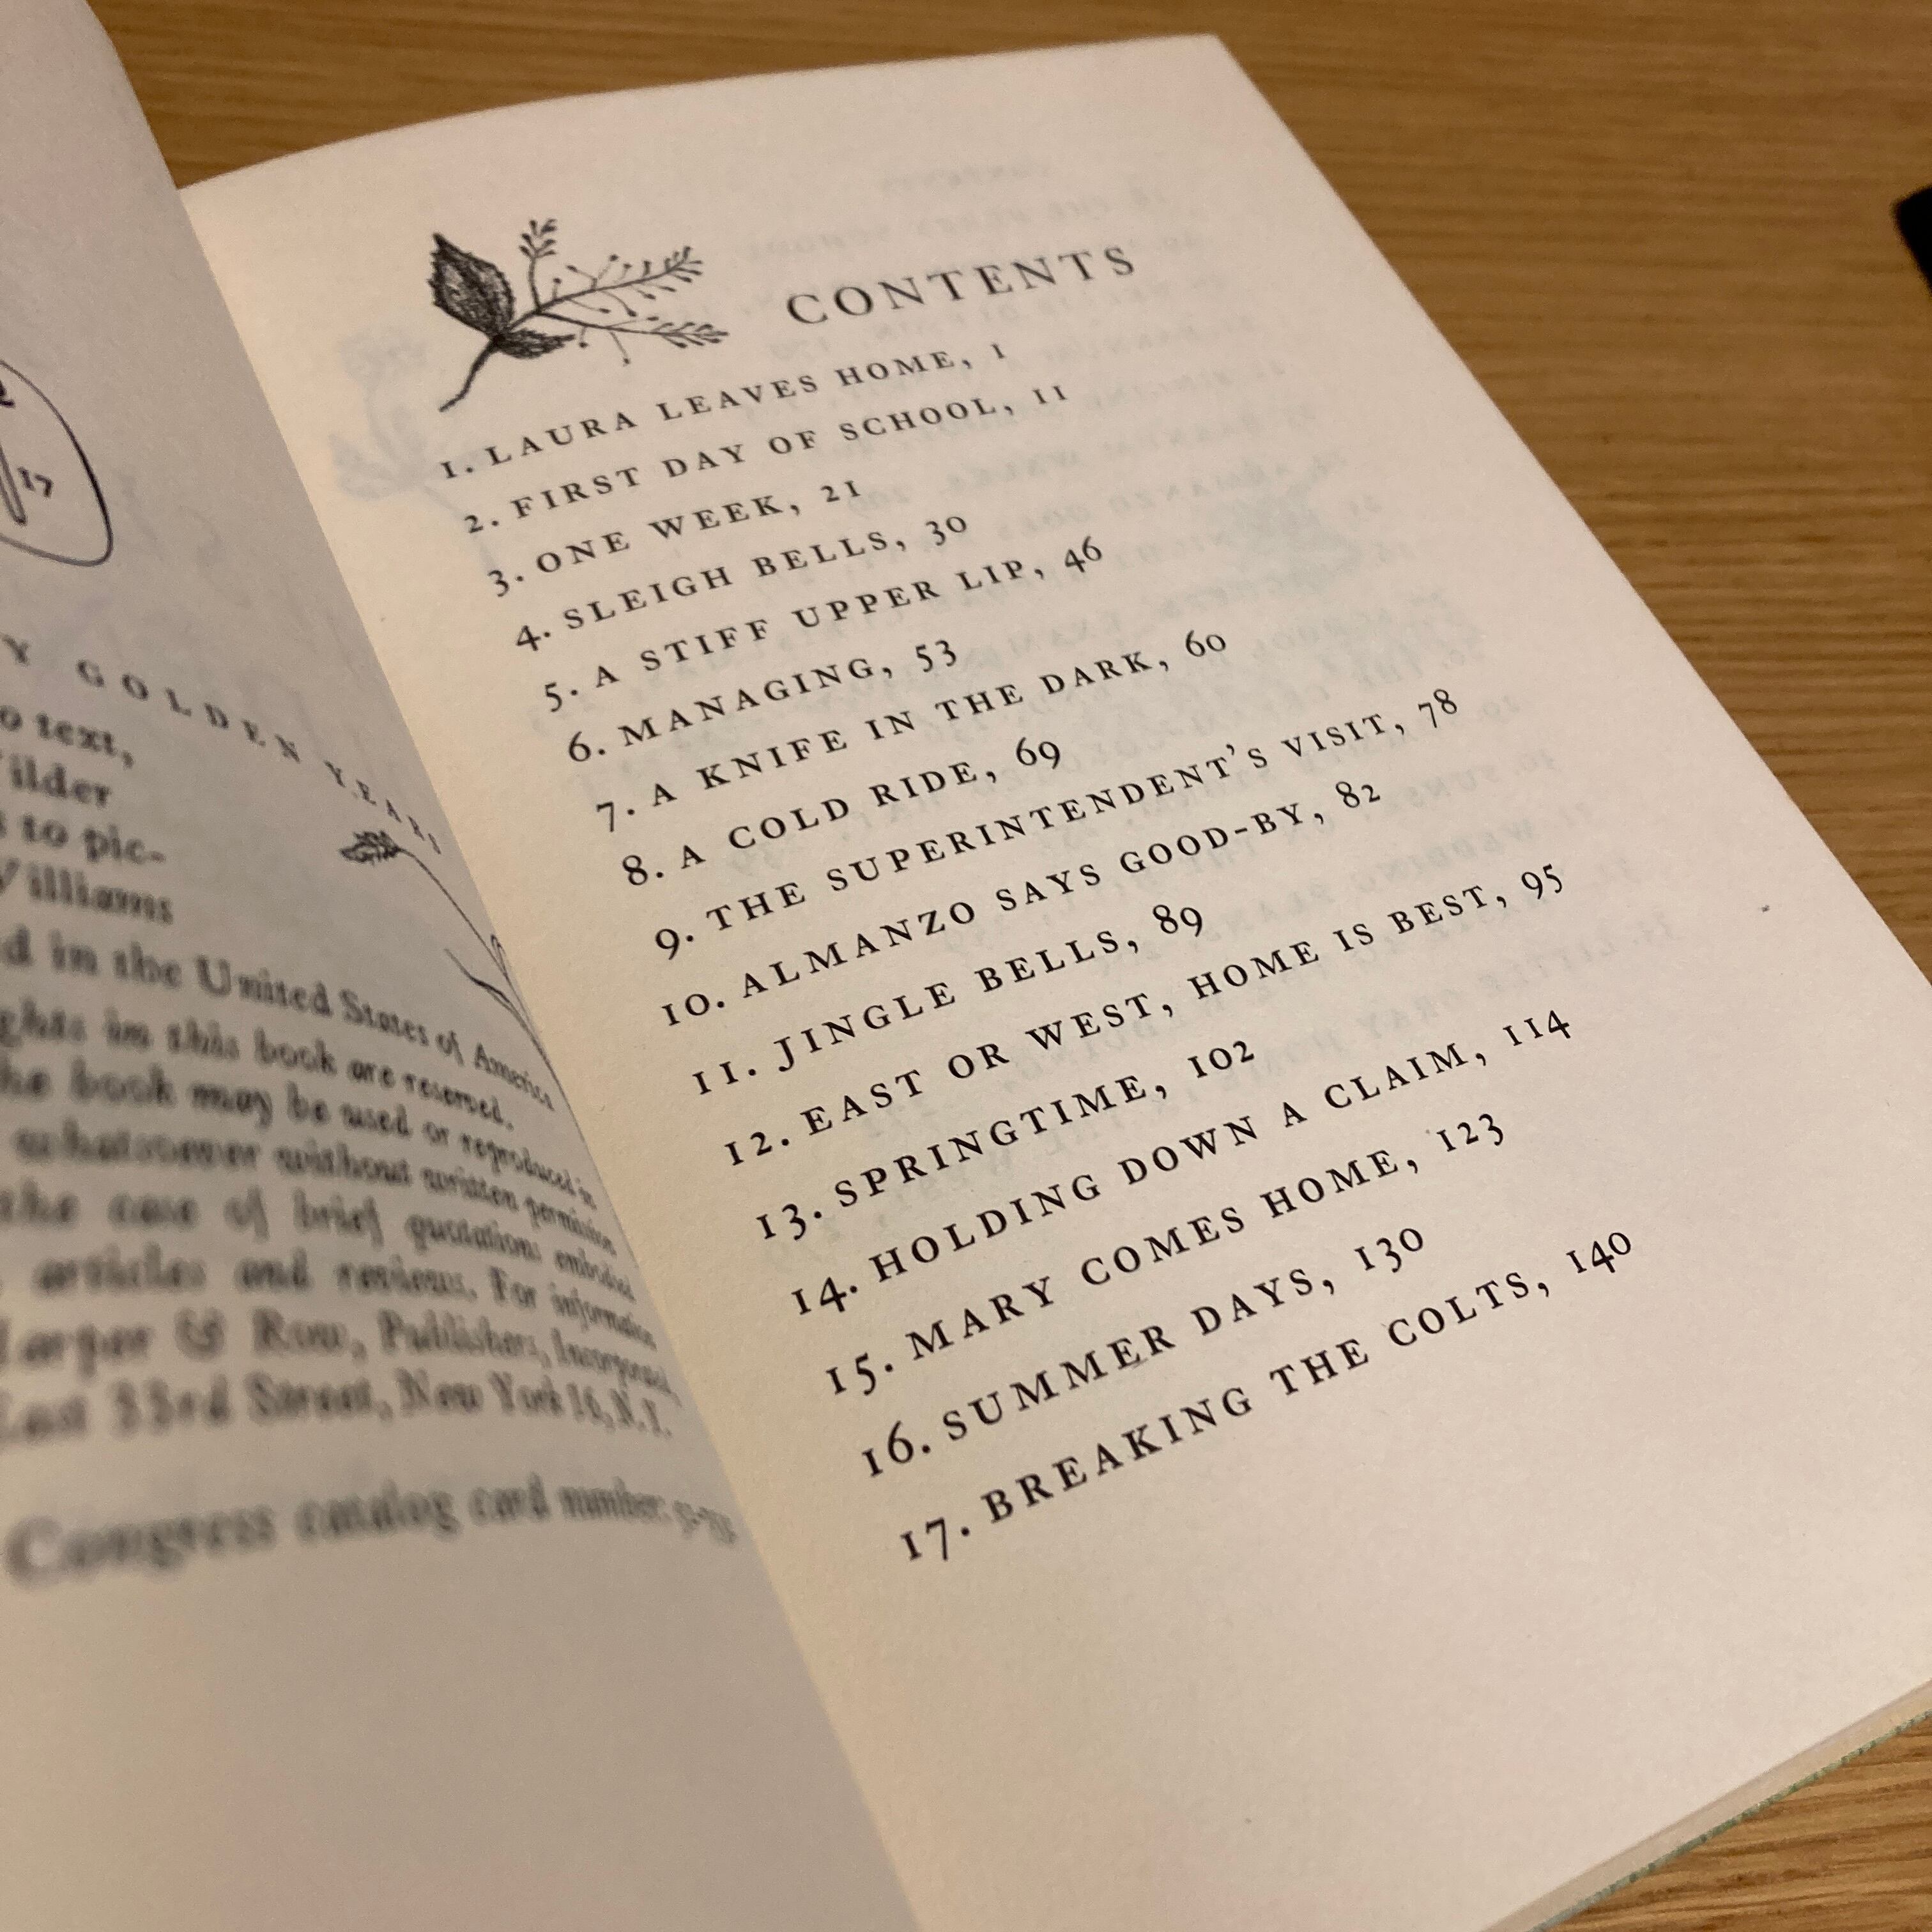 17
Y GOLDEN YEARS
o text,
ilder
s to pic-
Williams
d in the United States of America
ghts in this book are reserved.
he book may be used or reproduced in
whatsoever without written permission
the case of brief quotations embodied
articles and reviews. For information
Harper & Row, Publishers, Incorporated,
East 33rd Street, New York 16, N.Y.
Congress catalog card number:
CONTENTS
1. LAURA LEAVES HOME, 1
2. FIRST DAY OF SCHOOL, 11
3. ONE WEEK, 21
4. SLEIGH BELLS, 30
5. A STIFF UPPER LIP, 46
6. MANAGING, 53
7. A KNIFE IN THE DARK, 60
8. A COLD RIDE, 69
9. THE SUPERINTENDENT'S VISIT, 78
10. ALMANZO SAYS GOOD-BY, 82
11. JINGLE BELLS, 89
12. EAST OR WEST, HOME IS BEST, 95
13. SPRINGTIME, 102
14. HOLDING DOWN A CLAIM, 114
15. MARY COMES HOME, 123
16. SUMMER DAYS, 130
17. BREAKING THE COLTS, 140